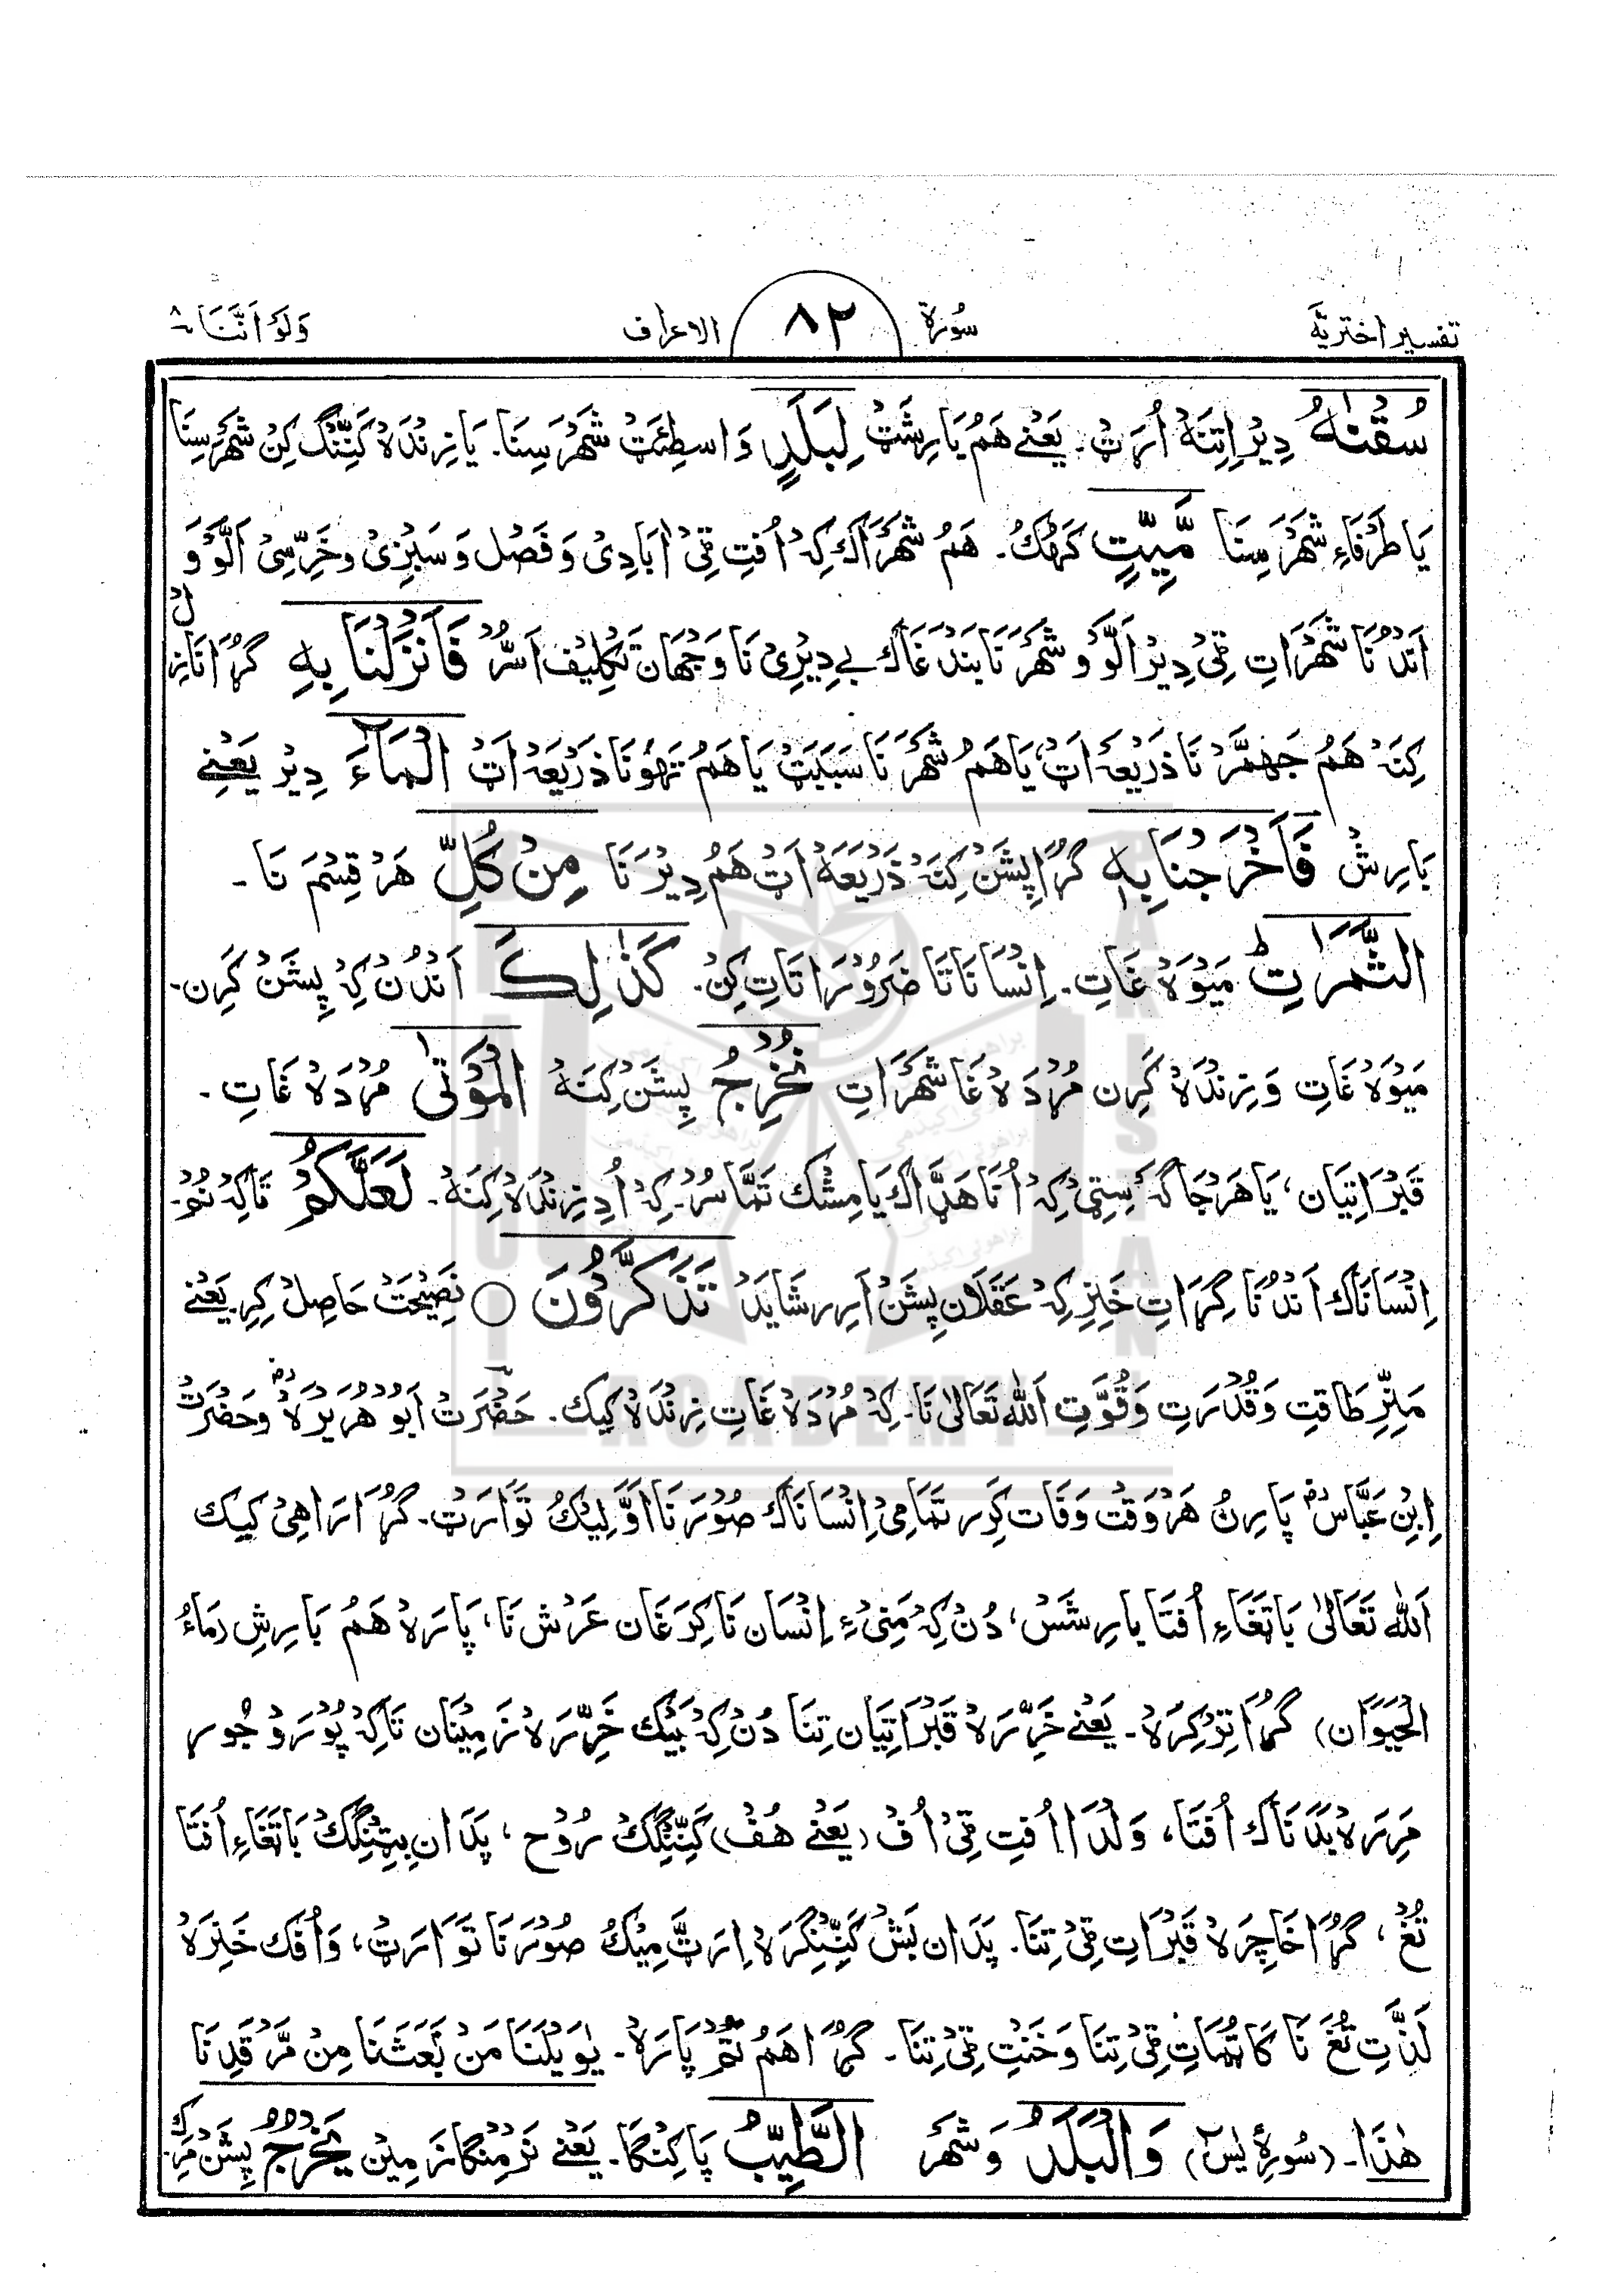 تفسیر اختریّہ
سُورة ٨٢ الاعراف
وَلَوْ اَنَّنَا ٨
سُقْنٰهُ دِیْر اِتِنَهْ اُرَٹْ۔ یَعْنِے هَمُ بَارِشَٹْ لِبَلَدٍ وَاسطِئَٹْ شَهْر سِنَا۔ یَا زِنْدَهْ کَنِّنْگ کِنْ شَهْر سِنَا
یَا طَرْفَاءِ شَهْر سِنَا مَّیِّتٍ کَہُکْ۔ هَمُ شَهْرَاکْ کِہْ اُفتِ ٹِیْ اٰبَادِیْ وَ فَصْل وَ سَبْزِیْ و خَرِّسِیْ اَلَّوْ وَ
اَنْدُنَا شَهْرَاتِ ٹِیْ دِیْر اَلَّوْ وَ شَهْرَنَا بَنْدَغَاک بے دِیْرِیْ نَا وَجْهَان تَکْلِیْف اَسُّرْ فَاَنْزَلْنَا بِهِ گُرَا نَازِل
کِنَہْ هَمُ جَهمَّرْ نَا ذَرِیْعَہْ اَٹ، یَا هَمُ شَهْرَ نَا سَبَبَٹ یَا هَمُ تَہونَا ذَرِیْعَہْ اَٹ الْمَآءَ دِیْر یَعْنِے
بَارِشْ فَاَخْرَجْنَا بِهٖ گُرَا پِشَنْ کِنَہْ ذَرِیْعَہْ اَٹْ هَمُ دِیْرَ نَا مِنْ کُلِّ هَرْ قِسْم نَا۔
الثَّمَرٰتِ ط مَیْوَهْ غَاتِ۔ اِنْسَانَاتَا ضَرُوْرَاتَاتِ کِنْ۔ کَذٰلِکَ اَنْدُنْ کِہْ پِشَنْ کَرِن۔
مَیْوَهْ غَاتِ وَ زِنْدَهْ کَرِن مُرْدَهْ غَا شَهْرَاتِ نُخْرِجُ پِشَنْ کِنَهْ الْمَوْتٰی مُرْدَهْ غَاتِ۔
قَبْرَاتِیَان، یَا هَرْ جَاگَہ سِتِیْ کِہْ اُنَا هَڈَّاک یَا مِشْک تَمَّاسُرْ۔ کِہْ اُدِ زِنْدَهْ کِنَهْ۔ لَعَلَّکُمْ تَاکِہْ نُمْ۔
اِنْسَانَاک اَنْدُنَا کِرَاتِ خَنِزِ کِہْ عَقْلَان پِشَنْ اَرِر شَایَدْ تَذَکَّرُوْنَ ○ نَصِیْحَتْ حَاصِلْ کِرِ یَعْنِے
مَنِّرِ طَاقَتِ وَ قُدْرَتِ وَ قُوَّتِ اَللّٰه تَعَالٰی نَا۔ کِہْ مُرْدَهْ غَاتِ زِنْدَهْ کِیک۔ حَضْرَتْ اَبُوْ هُرَیْرَهْ رض وَ حَضْرَتْ
اِبْنِ عَبَّاسْ رض پَارِنْ هَرْ وَقْتْ وَفَات کَرِر تَمَامِیْ اِنْسَانَاک صُوْرَنَا اَوَّلِیْکُ تَوَارَٹْ۔ گُرَا رَاهِیْ کِیک
اَللّٰه تَعَالٰی بَاتَغَاءِ اُفتَا بَارِشَسْ، دُنْ کِہْ مَنِیْءِ اِنْسَان نَا کِرَغَان عَرْش نَا، پَارَهْ هَمُ بَارِشِ (مَاءُ
الْحَیَوَان) گُرَا تِرْکِرَهْ۔ یَعْنِے خَرِّرَهْ قَبْرَاتِیَان تِنَا دُنْ کِہْ بَیْک خَرِّرَهْ زَمِیْنَان تَاکِہْ پُوْرَ وْ جُور
مَرِرَهْ بَدَنَاک اُفتَا، وَلْدَا اُفتِ ٹِیْ اُف (یَعْنِے هُف) کَنِّنْگِکْ رُوْح، پَدَان بِتِنْگِکْ بَاتَغَاءِ اُفتَا
تُغْ، گُرَا خَاچِرَهْ قَبْرَاتِ ٹِیْ تِنَا۔ پَدَان بَشْ کَنِّنْگِرَهْ اِرَٹْمِیْکُ صُوْرَنَا تَوَارَٹْ، وَ اُفک خَنِرَهْ
لَذَّتِ تُغَ نَا کَاٹُمَاتِ ٹِیْ تِنَا وَ خَنْتِ ٹِیْ تِنَا۔ گُرَا هَمُ ٹُمْ پَارَهْ۔ یٰوَیْلَنَا مَنْ بَعَثَنَا مِنْ مَّرْقَدِنَا
هٰذَا۔ (سُورۂ یٰسٓ) وَالْبَلَدُ وَ شَهْر الطَّیِّبُ پَاکِنْگَا۔ یَعْنِے نَرْمُنْگَا زَمِیْن یَخْرُجُ پِشَنْ مَرِک